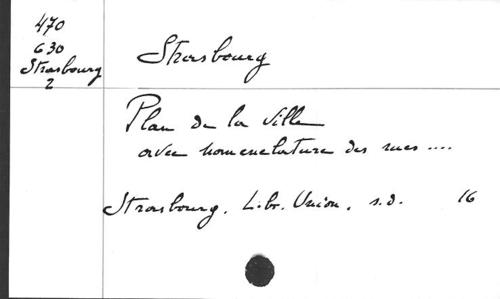 470
630
Strasbourg
2
Strasbourg
Plan de la ville
avec nomenclature des rues ....
Strasbourg. Libr. Union. s.d. 16